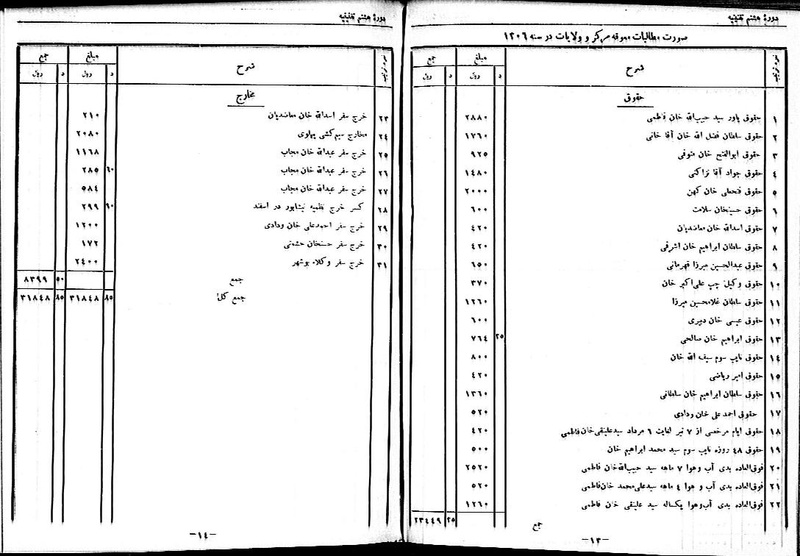 دورهٔ هشتم تقنینیه
صورت مطالبات معوقه مرکز و ولایات در سنه ۱۳۰۶
شرح
مبلغ
جمع
د ریال
د ریال
حقوق
۱ حقوق یاور سید حبیب‌الله خان فاطمی ۲۸۸۰
۲ حقوق سلطان فضل الله خان آقا خانی ۱۷۶۰
۳ حقوق ابوالفتح خان صوفی ۹۲۵
۴ حقوق جواد آقا تراکتی ۱۴۸۰
۵ حقوق فتحعلی خان کهن ۲۰۰۰
۶ حقوق حسینخان سلامت ۶۰۰
۷ حقوق اسدالله خان معاضدیان ۴۲۰
۸ حقوق سلطان ابراهیم خان اشرفی ۴۲۰
۹ حقوق عبدالحسین میرزا قهرمانی ۶۵۰
۱۰ حقوق وکیل چپ علی‌اکبر خان ۳۷۰
۱۱ حقوق سلطان غلامحسین میرزا ۱۲۶۰
۱۲ حقوق عیسی خان دبیری ۶۰۰
۱۳ حقوق ابراهیم خان صالحی ۲۵ ۷۶۴
۱۴ حقوق نایب سوم سیف الله خان ۸۰۰
۱۵ حقوق امیر ریاضی ۴۲۰
۱۶ حقوق سلطان ابراهیم خان سلطانی ۱۳۶۰
۱۷ حقوق احمد علی خان ودادی ۵۲۰
۱۸ حقوق ایام مرخصی از ۷ تیر لغایت ۶ مرداد سید علینقی خان فاطمی ۴۲۰
۱۹ حقوق ۴۸ روزه نایب سوم سید محمد ابراهیم خان ۵۰۰
۲۰ فوق‌العاده بدی آب و هوا ۷ ماهه سید حبیب‌الله خان فاطمی ۲۵۲۰
۲۱ فوق‌العاده بدی آب و هوا ۴ ماهه سید علی محمد خان فاطمی ۵۲۰
۲۲ فوق‌العاده بدی آب و هوا یکساله سید علینقی خان فاطمی ۱۲۶۰
جمع ۲۵ ۲۳۴۴۹
–۱۳–
دورهٔ هشتم تقنینیه
شرح
مبلغ
جمع
د ریال
د ریال
مخارج
۲۳ خرج سفر اسدالله خان معاضدیان ۲۱۰
۲۴ مخارج سیم‌کشی پهلوی ۲۰۸۰
۲۵ خرج سفر عبدالله خان مجاب ۱۱۶۸
۲۶ خرج سفر عبدالله خان مجاب ۶۰ ۲۸۵
۲۷ خرج سفر عبدالله خان مجاب ۵۸۴
۲۸ کسر خرج نظمیه نیشابور در اسفند ۶۰ ۲۹۹
۲۹ خرج سفر احمد علی خان ودادی ۱۲۰۰
۳۰ خرج سفر حسنخان حشمتی ۱۷۲
۳۱ خرج سفر وکلاء بوشهر ۲۴۰۰
جمع ۵۰ ۸۳۹۹
جمع کل ۸۵ ۳۱۸۴۸ ۸۵ ۳۱۸۴۸
–۱۴–